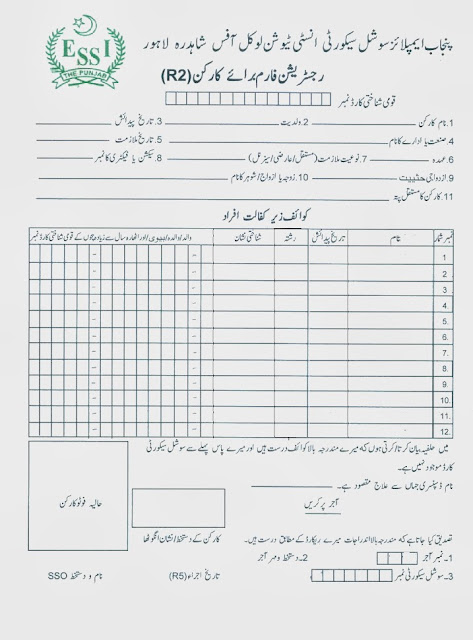 ESSI
THE PUNJAB
پنجاب ایمپلائز سوشل سیکورٹی انسٹی ٹیوشن لوکل آفس شاہدرہ لاہور
رجسٹریشن فارم برائے کارکن (R2)
قومی شناختی کارڈ نمبر
1. نام کارکن 2. ولدیت 3. تاریخ پیدائش
4. صنعت یا ادارے کا نام 5. تاریخ ملازمت
6. عہدہ 7. نوعیت ملازمت (مستقل/عارضی/سیزنل) 8. سیکشن یا فیکٹری کا نمبر
9. ازدواجی حثییت 10. زوجہ یا ازواج/شوہر کا نام
11. کارکن کا مستقل پتہ
کوائف زیر کفالت افراد
نمبر شمار نام تاریخ پیدائش رشتہ شناختی نشان والد/والدہ/بیوی/اور اٹھارہ سال سے زیادہ بچوں کے قومی شناختی کارڈ نمبر
1 -
2 -
3 -
4. -
5. -
6. -
7. -
8. -
9. -
10. -
11. -
12. -
میں حلفیہ بیان کرتا/کرتی ہوں کہ میرے مندرجہ بالا کوائف درست ہیں اور میرے پاس پہلے سے سوشل سیکورٹی
کارڈ موجود نہیں ہے۔
نام ڈسپنسری جہاں سے علاج مقصود ہے۔
آجر پر کریں
حالیہ فوٹو کارکن
کارکن کے دستخط/نشان انگوٹھا
تصدیق کیا جاتا ہے کہ مندرجہ بالا اندراجات میرے ریکارڈ کے مطابق درست ہیں۔
1- نمبر آجر 2- دستخط و مہر آجر
3- سوشل سیکورٹی نمبر تاریخ اجراء (R5) نام و دستخط SSO